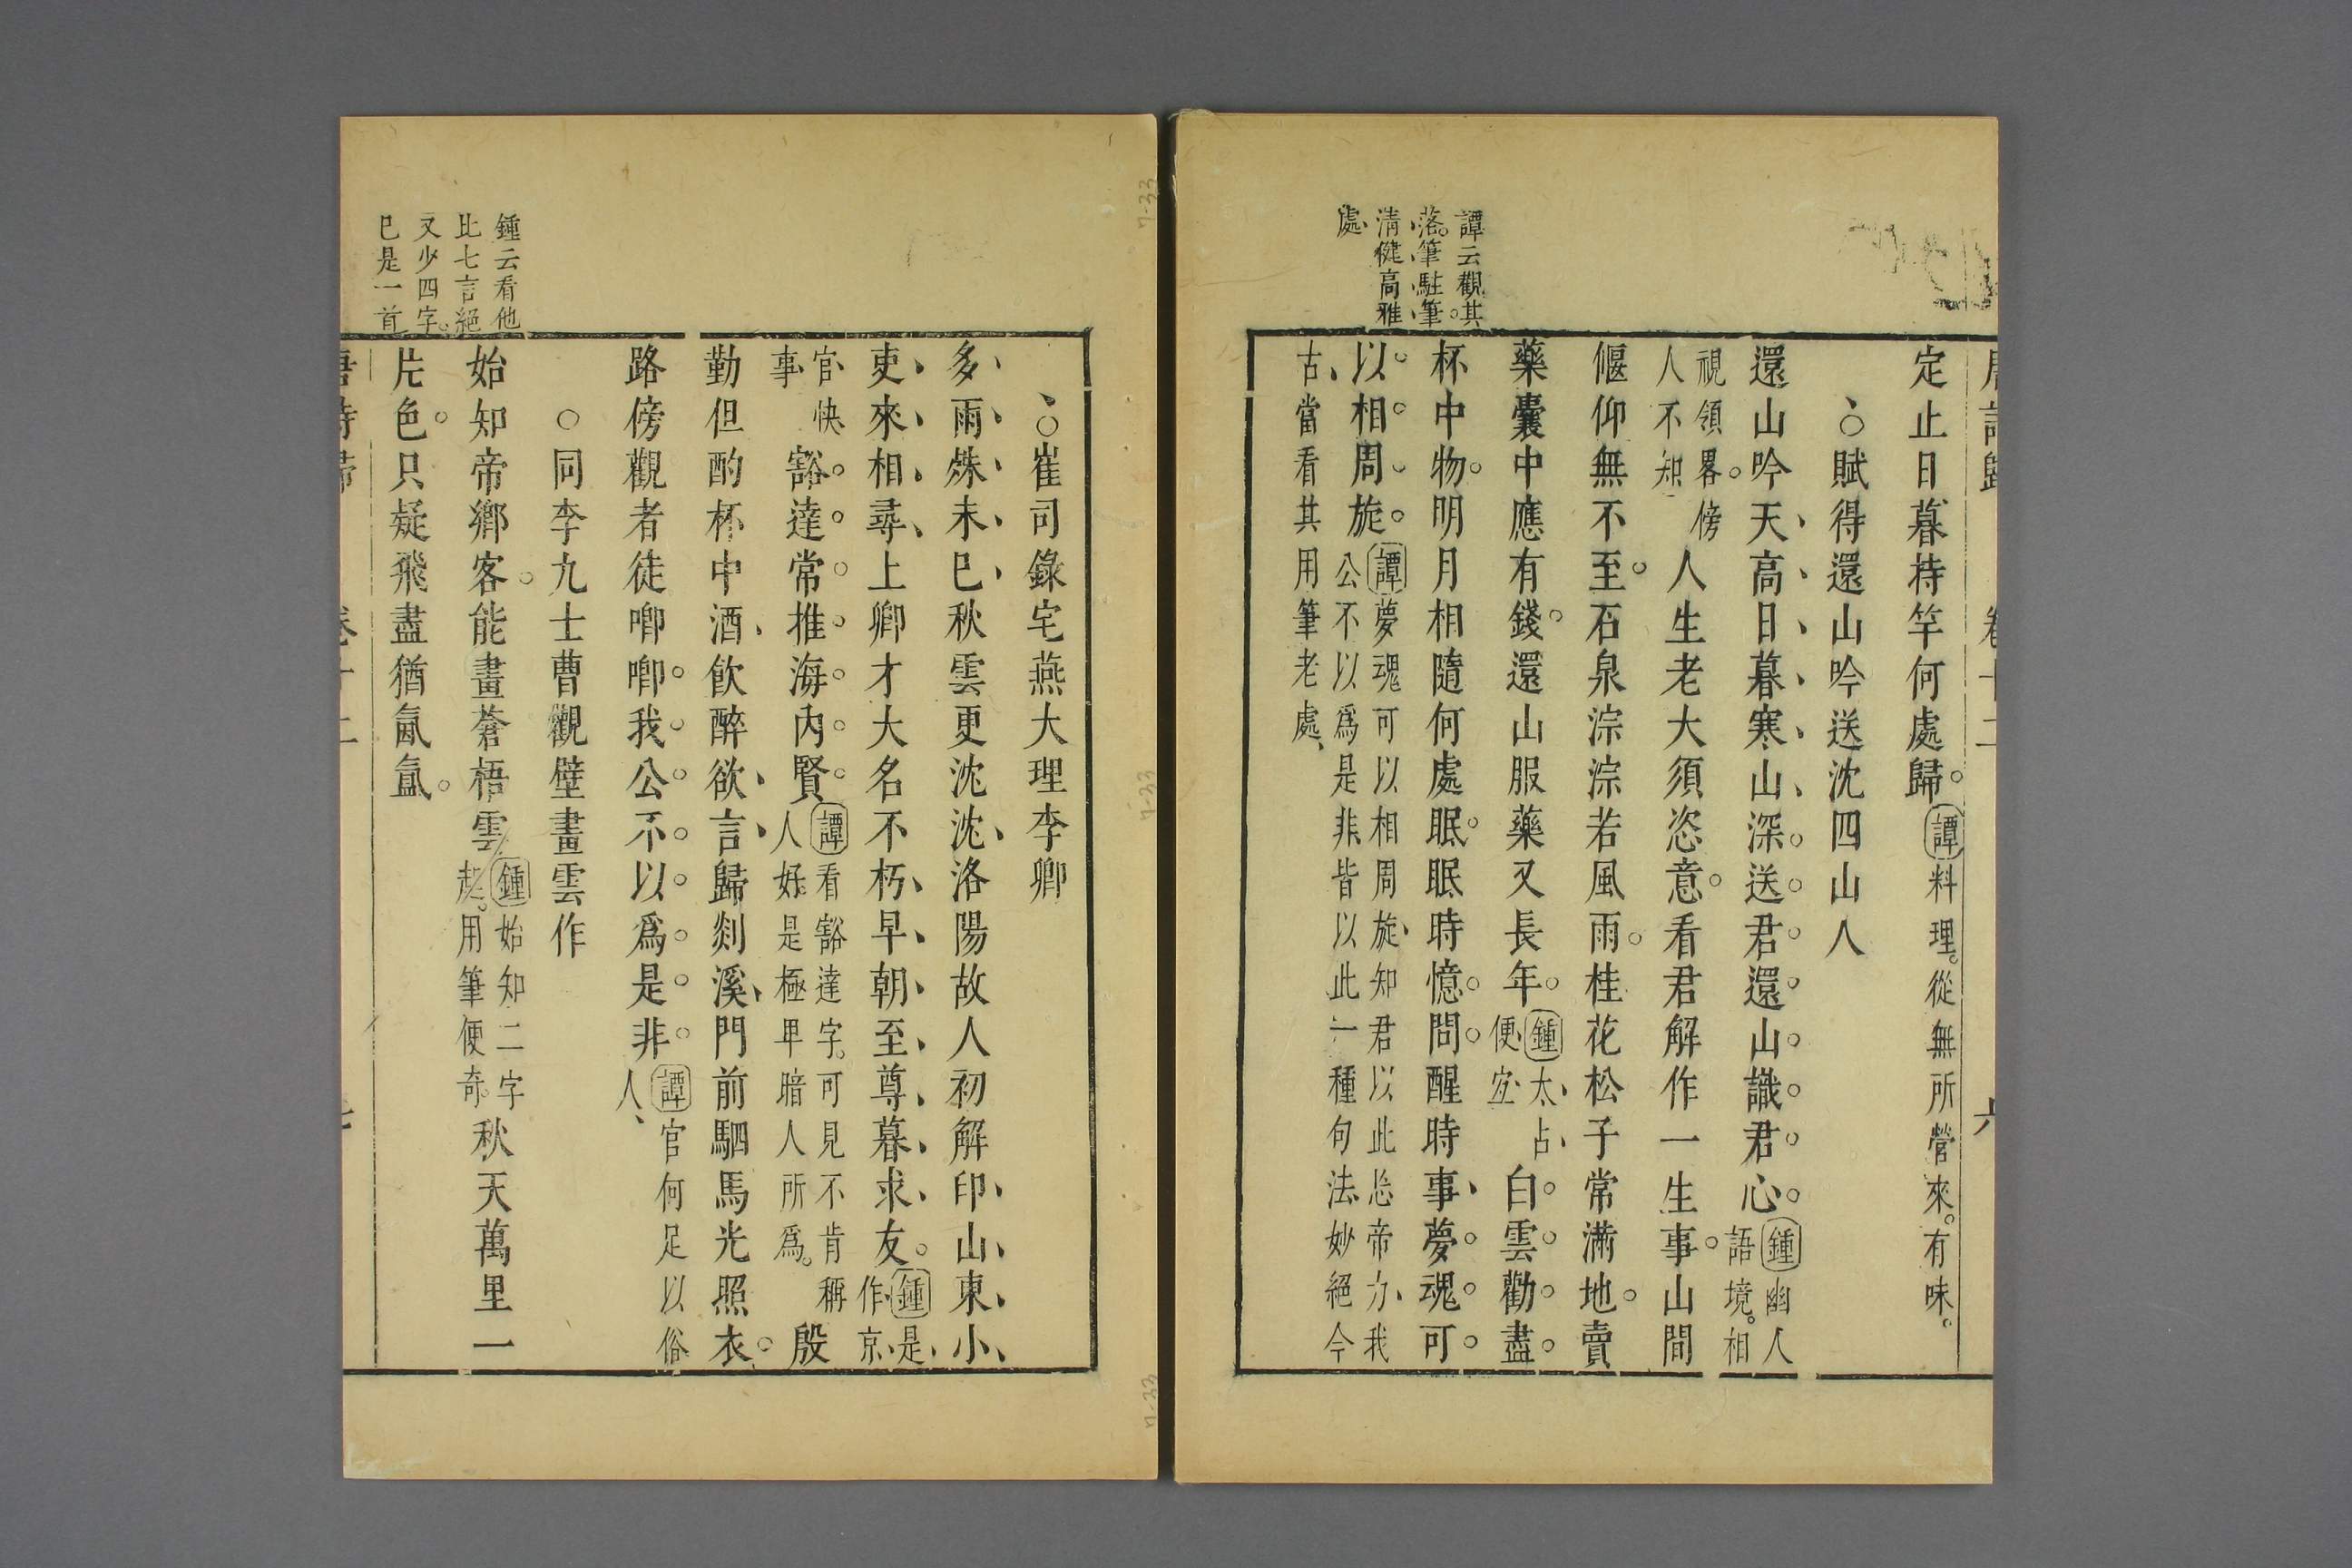 譚云觀其
落筆駐筆
清健高雅
處
定止日暮持竿何處歸譚料理從無所營來有味
○賦得還山吟送沈四山人
還山吟天高日暮寒山深送君還山識君心鍾幽人語境相
視領畧傍人不知人生老大須恣意看君解作一生事山間
偃仰無不至石泉淙淙若風雨桂花松子常滿地賣
藥囊中應有錢還山服藥又長年鍾太占便宜白雲勸盡
杯中物明月相隨何處眠眠時憶問醒時事夢魂可
以相周旋譚夢魂可以相周旋知君以此忘帝力我公不以爲是非皆以此一種句法妙絕今
古當看其用筆老處
○崔司錄宅燕大理李卿
多雨殊未巳秋雲更沈沈洛陽故人初解印山東小
吏來相尋上卿才大名不朽早朝至尊暮求友鍾是作京
官快事豁達常推海內賢譚看豁達字可見不肯稱人好是極卑暗人所爲殷
勤但酌杯中酒飲醉欲言歸剡溪門前駟馬光照衣
路傍觀者徒唧唧我公不以爲是非譚官何足以俗人
○同李九士曹觀壁畫雲作
始知帝鄉客能畫蒼梧雲鍾始知二字起用筆便奇秋天萬里一
片色只疑飛盡猶氤氳
鍾云看他
比七言絕
又少四字
巳是一首